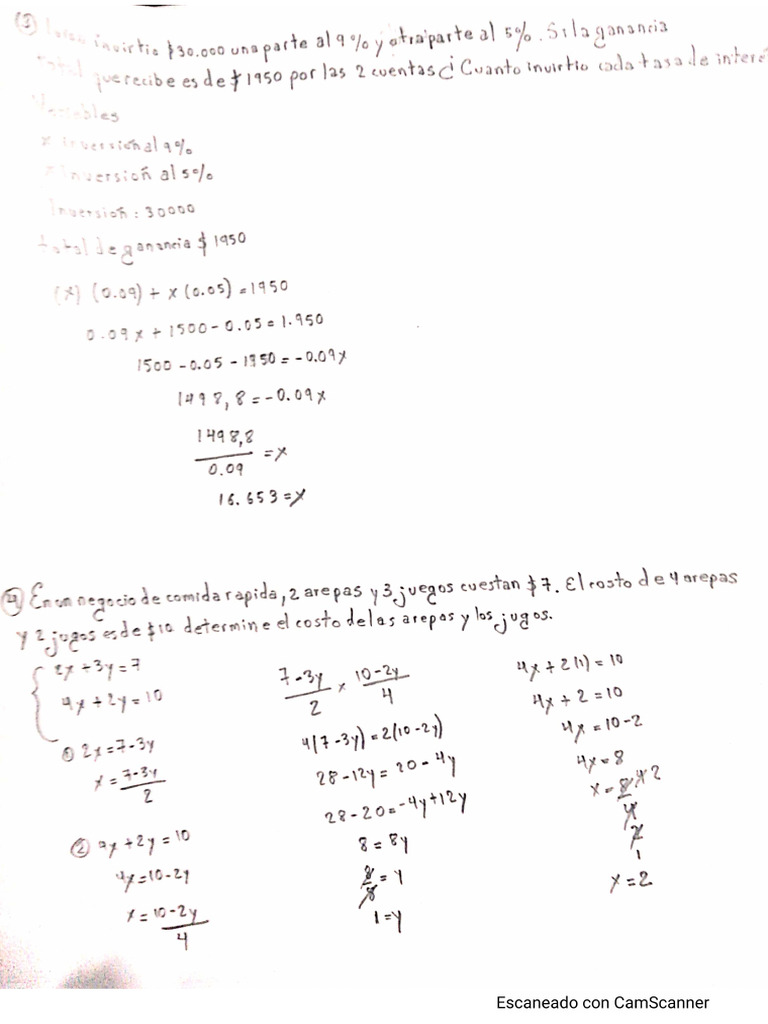 ③ invirtio $30.000 una parte al 9% y otra parte al 5%. Si la ganancia
total que recibe es de $1950 por las 2 cuentas ¿ Cuanto invirtio cada tasa de interé
Variables
x inversion al 9%
inversion al 5%
Inversion: 30000
total de ganancia $ 1950
(x) (0.09) + x (0.05) = 1950
0.09x + 1500 - 0.05 = 1.950
1500 - 0.05 - 1950 = -0.09x
1498,8 = -0.09x
1498,8 / 0.09 = x
16.653 = x
④ En un negocio de comida rapida, 2 arepas y 3 juegos cuestan $7. El costo de 4 arepas
y 2 jugos es de $10 determine el costo de las arepas y los jugos.
2x + 3y = 7
4x + 2y = 10
① 2x = 7 - 3y
x = 7 - 3y / 2
② 4x + 2y = 10
4x = 10 - 2y
x = 10 - 2y / 4
7 - 3y / 2 x 10 - 2y / 4
4(7 - 3y) = 2(10 - 2y)
28 - 12y = 20 - 4y
28 - 20 = -4y + 12y
8 = 8y
8/8 = y
1 = y
4x + 2(1) = 10
4x + 2 = 10
4x = 10 - 2
4x = 8
x = 8 4 2
4
2
1
x = 2
Escaneado con CamScanner